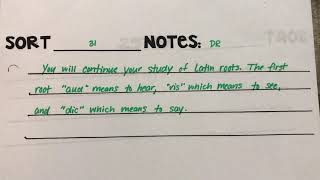 SORT 31 NOTES: DR
You will continue your study of Latin roots. The first
root "aud" means to hear, "vis" which means to see,
and "dic" which means to say.